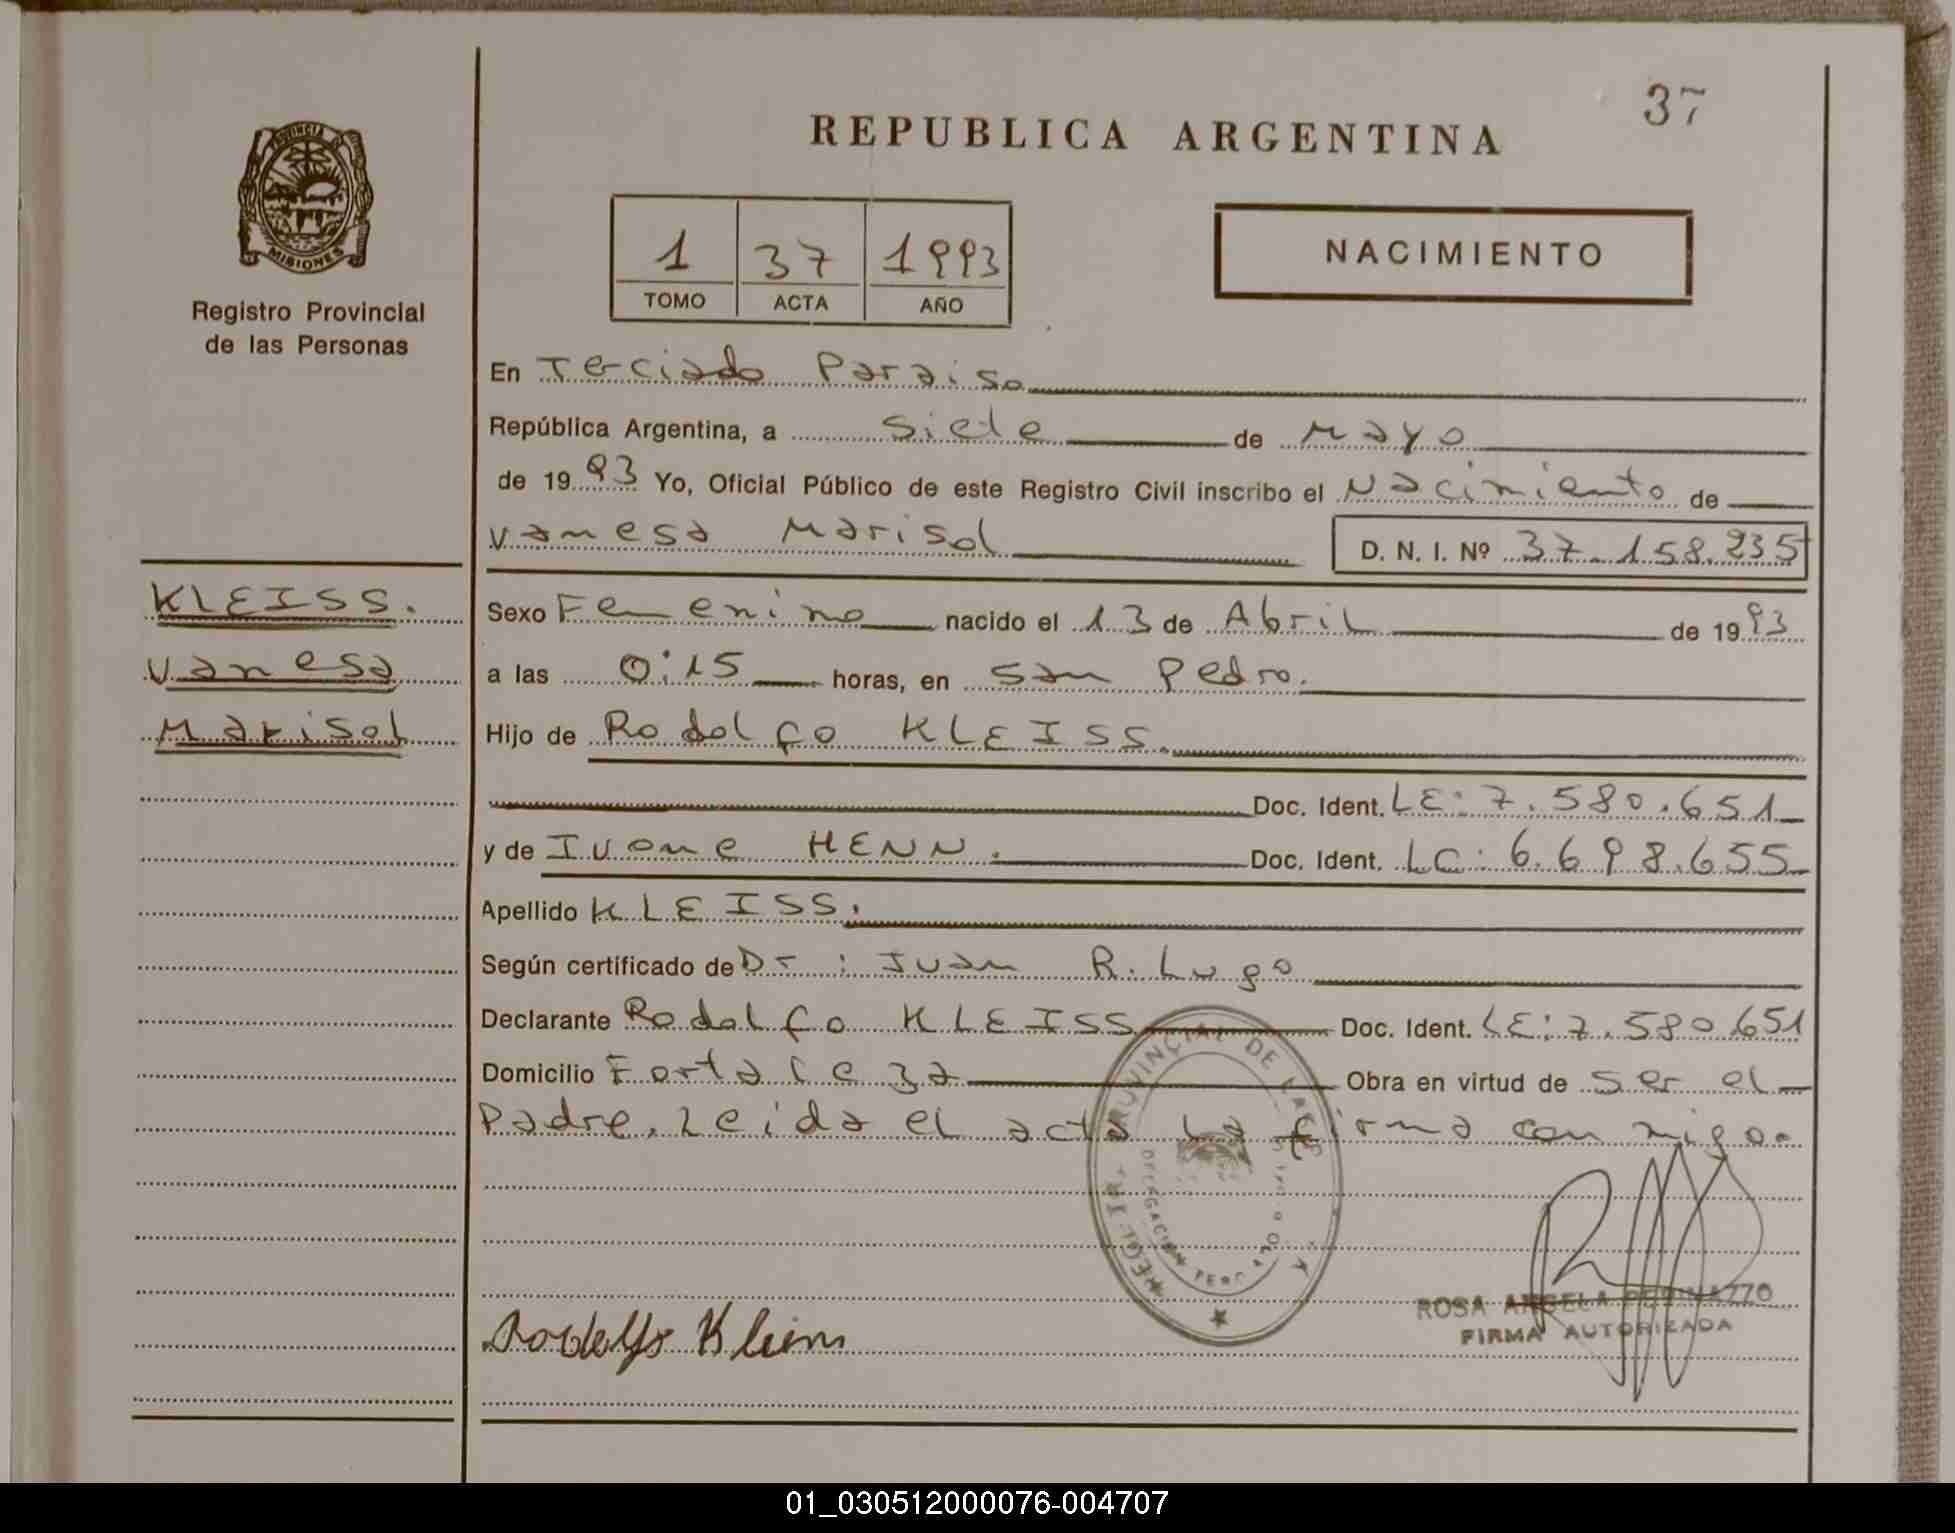 37
REPUBLICA ARGENTINA
PROVINCIA DE
MISIONES
Registro Provincial
de las Personas
1 37 1993
TOMO ACTA AÑO
NACIMIENTO
En Terciado Paraiso
República Argentina, a siete de Mayo
de 1993 Yo, Oficial Público de este Registro Civil inscribo el Nacimiento de
Vanesa Marisol D. N. I. Nº 37.158.235
KLEISS.
Vanesa
Marisol
Sexo Femenino nacido el 13 de Abril de 1993
a las 0:15 horas, en San Pedro.
Hijo de Rodolfo KLEISS.
Doc. Ident. LE: 7.580.651
y de Ivone HENN. Doc. Ident. LC: 6.698.655
Apellido KLEISS.
Según certificado de Dr: Juan R. Lugo
Declarante Rodolfo KLEISS Doc. Ident. LE: 7.580.651
Domicilio Fortaleza Obra en virtud de ser el
Padre. Leida el acta la firma con migo.
PROVINCIAL DE LAS
DELEGACION
Rodolfo Kleiss
ROSA ANGELA
FIRMA AUTORIZADA
01_030512000076-004707